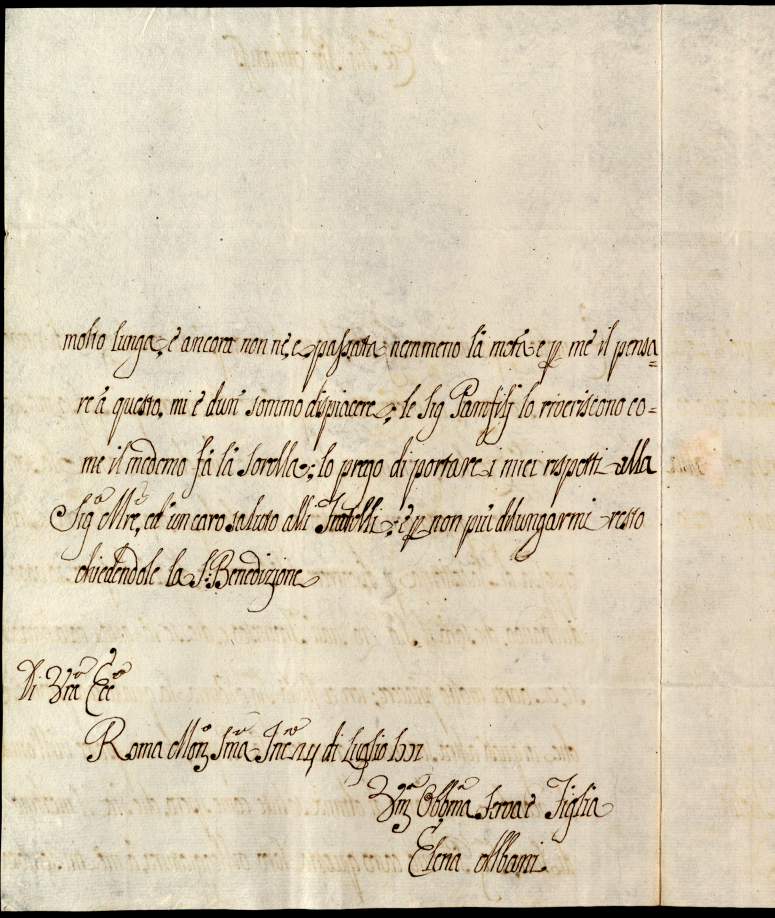 molto lunga, è ancora non n'è, e passata nemmeno là metà e p me il pensa=
re à questo, mi è d'un sommo dispiacere, le Sig Pamfilj lo riveriscono co=
me il medemo fà là Sorella; lo prego di portare i miei rispetti alla
Sig.ª Mre, ed un caro saluto alli Fratelli, e p non più dilungarmi resto
chiedendole la S: Benedizione
Di Vra Ecc
Roma di Luglio
Obbma Serva e Figlia
Elena Albani